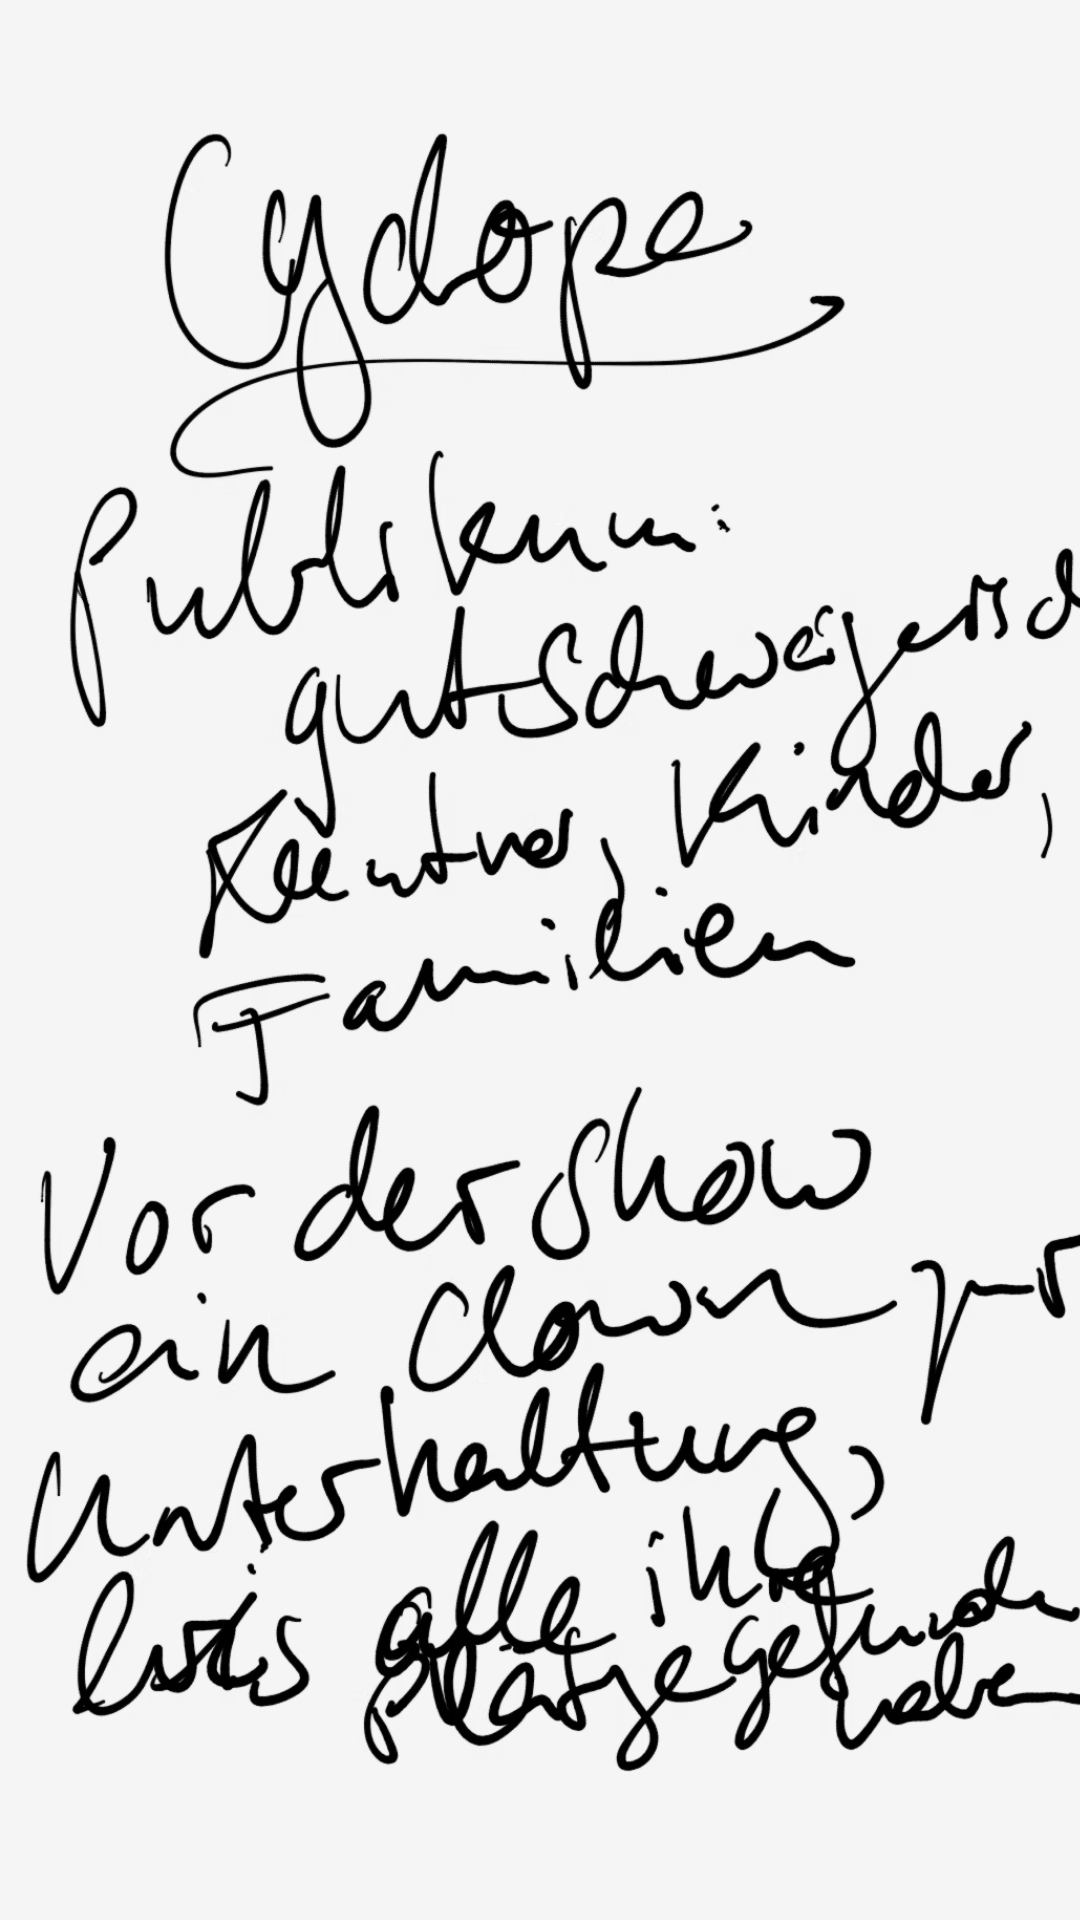 Cyclope
Publikum:
gutschweizerisch
Rentner, Kinder,
Familien
Vor der Show
ein Clown zur
Unterhaltung,
bis alle ihre
Plätze gefunden
haben